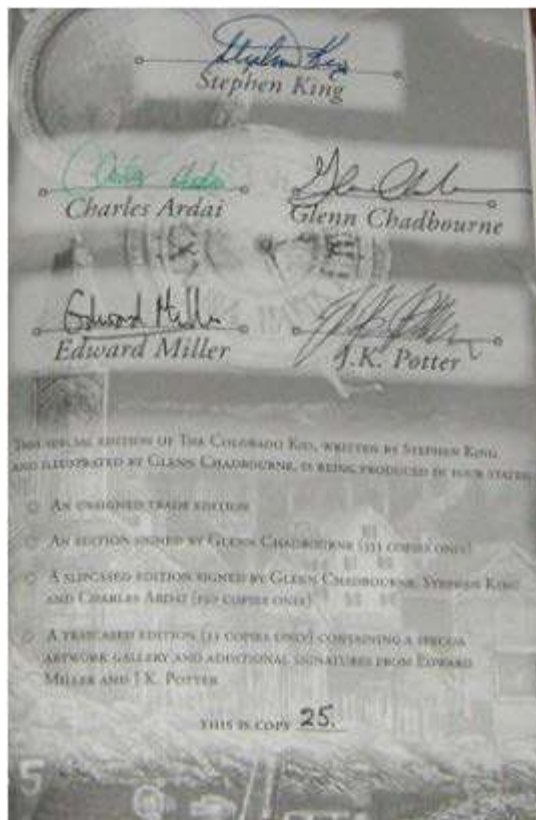 Stephen King
Stephen King
Charles Ardai
Glenn Chadbourne
Edward Miller
Edward Miller
J.K. Potter
THIS SPECIAL EDITION OF THE COLORADO KID, WRITTEN BY STEPHEN KING
AND ILLUSTRATED BY GLENN CHADBOURNE, IS BEING PRODUCED IN FOUR STATES:
AN UNSIGNED TRADE EDITION
AN EDITION SIGNED BY GLENN CHADBOURNE ( COPIES ONLY)
A SLIPCASED EDITION SIGNED BY GLENN CHADBOURNE, STEPHEN KING
AND CHARLES ARDAI ( COPIES ONLY)
A TRAYCASED EDITION (33 COPIES ONLY) CONTAINING A
ARTWORK GALLERY AND ADDITIONAL SIGNATURES FROM EDWARD
MILLER AND J.K. POTTER
THIS IS COPY 25.
5